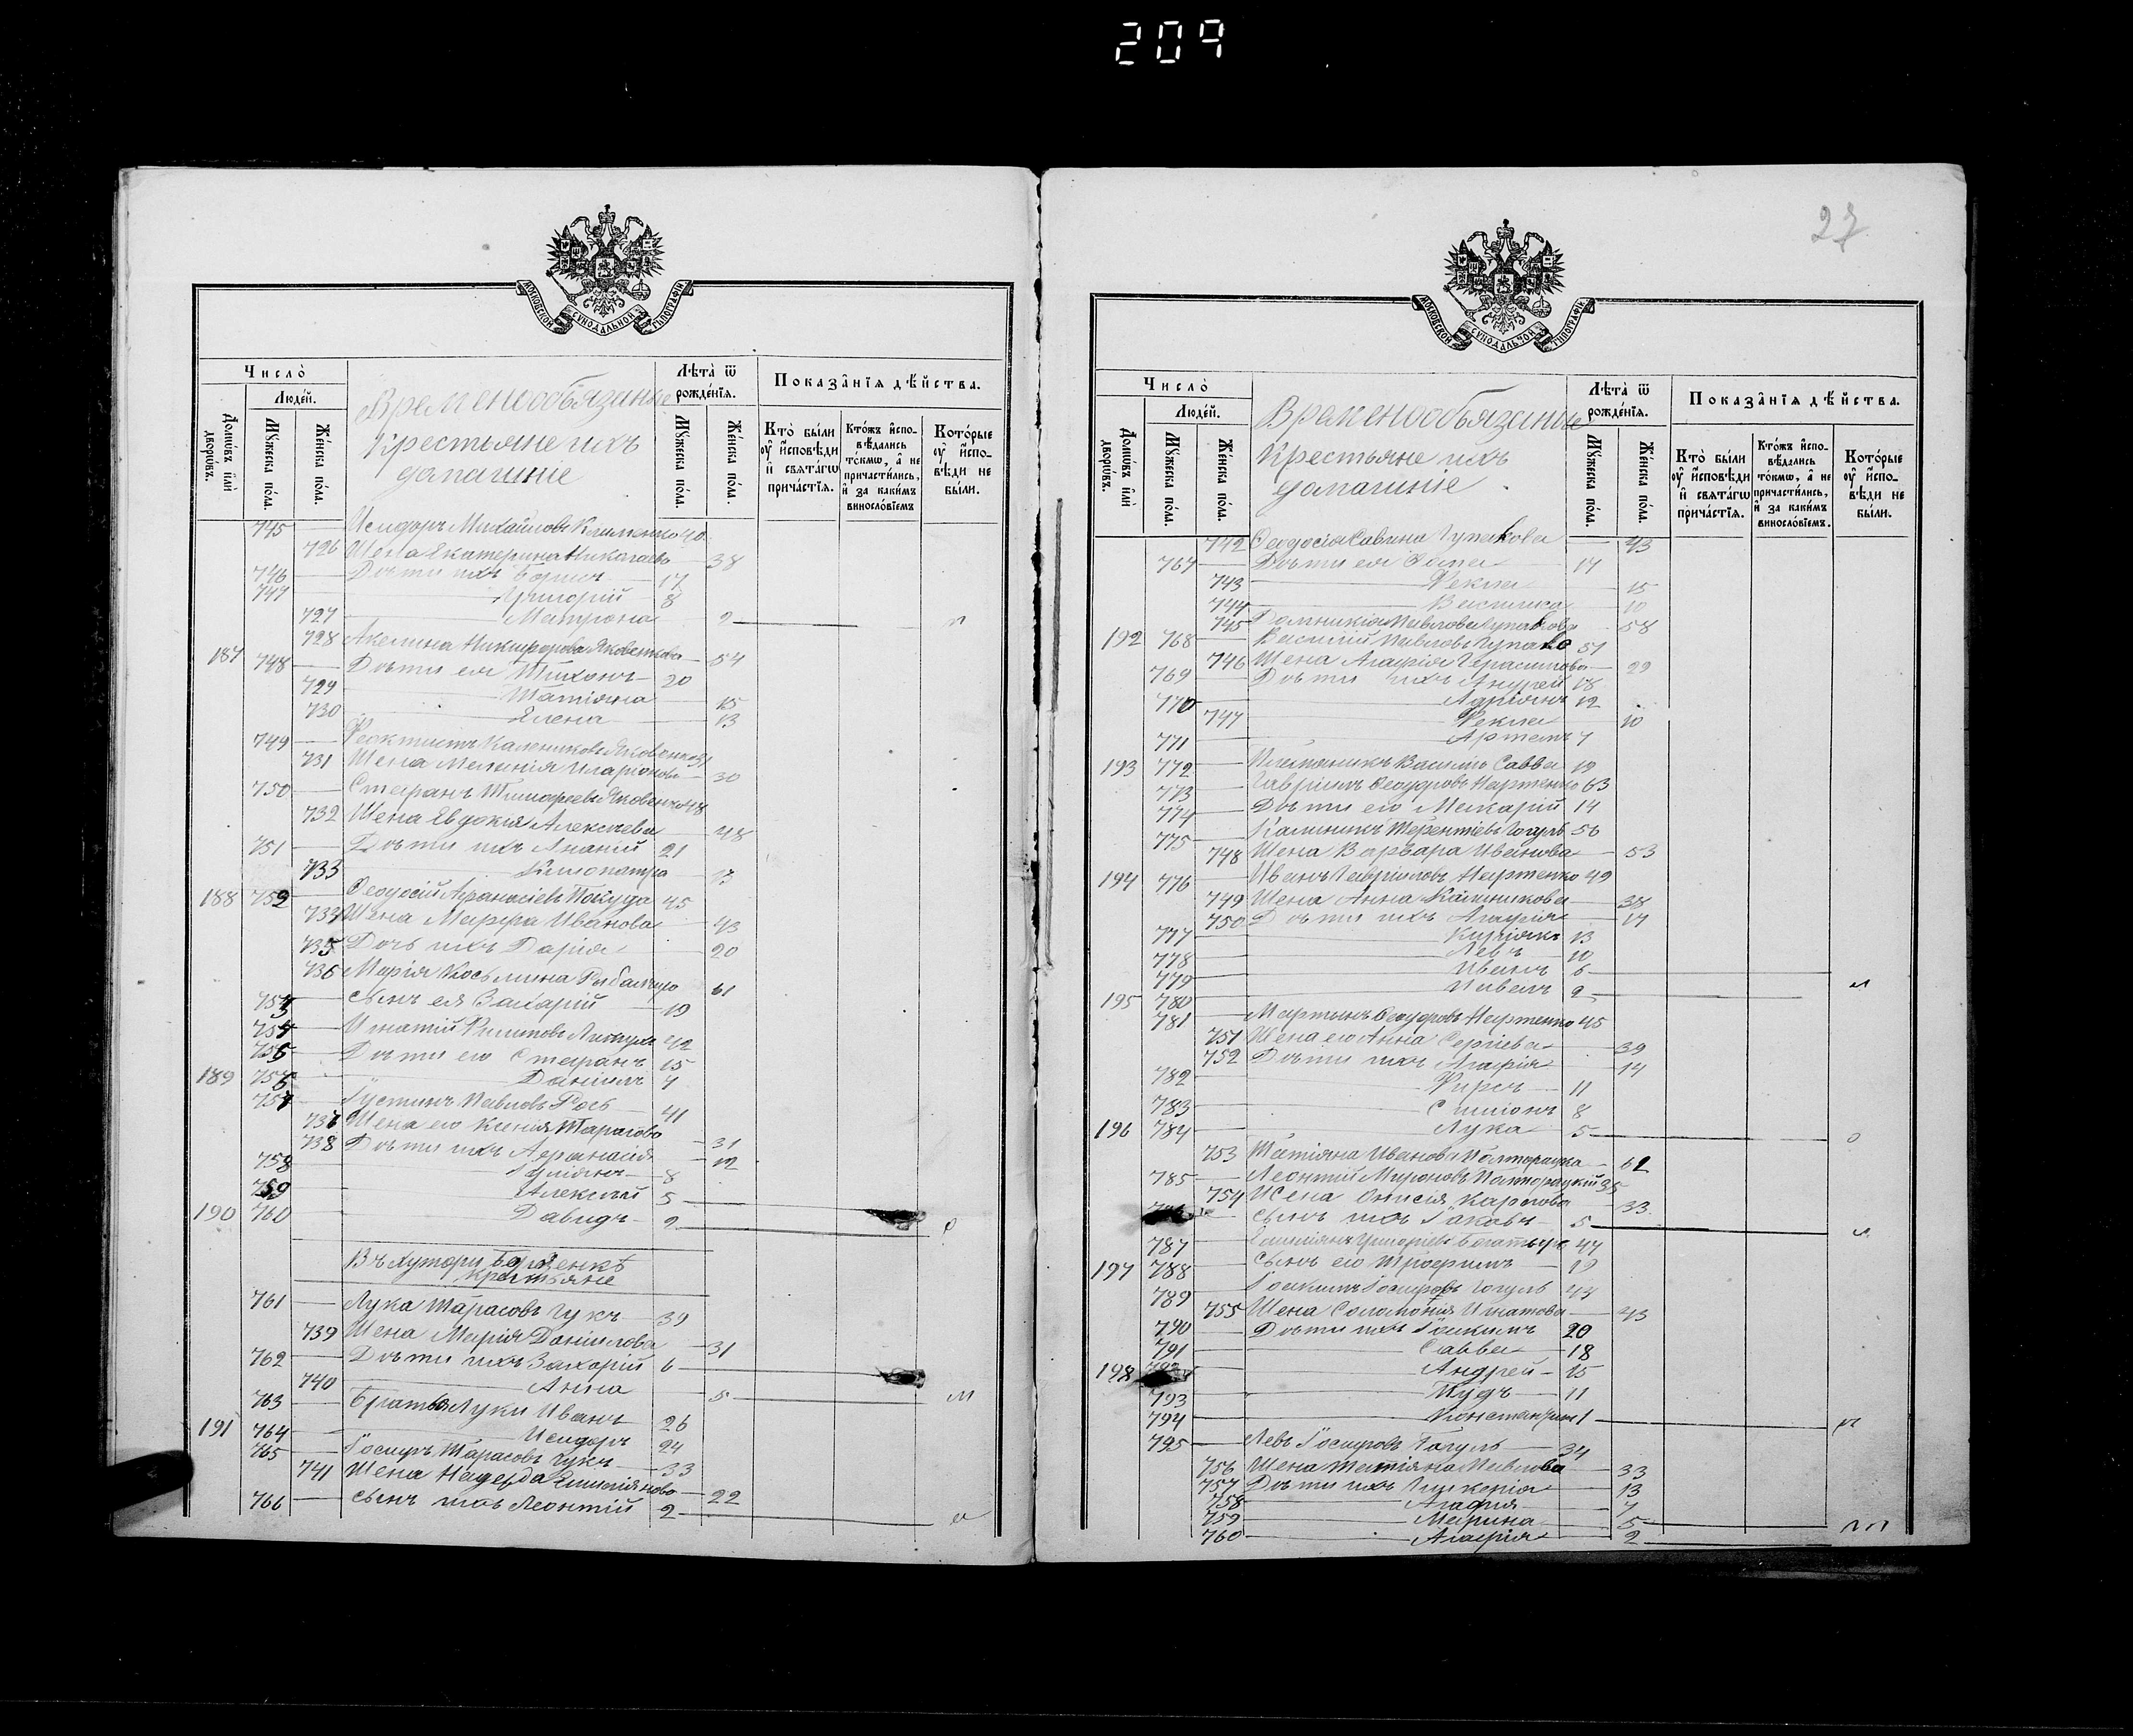 209
МОСКОВСКОЙ СѴНОДАЛЬНОЙ ТИПОГРАФІИ
Число̀
Людéй.
Домѡ́въ и҆лѝ дворѡ́въ.
Мꙋ́жеска по́ла.
Же́нска по́ла.
Временообязаные
Крестьяне ихъ
домашніе
Лѣ́та ѿ рожде́нїѧ.
Мꙋ́жеска по́ла.
Же́нска по́ла.
Показа̑нїѧ дѣ́йства.
Кто̀ бы́ли ᲂу҆ и҆сповѣ́ди и҆ свѧта́гѡ прича́стїѧ.
Кто́жъ и҆сповѣ́дались то́кмѡ, а҆ не причасти́лись, и҆ за каки́мъ виносло́вїемъ
Кото́рые ᲂу҆ и҆спо­вѣ́ди не бы́ли.
745 Исидоръ Михайловъ Клименко 40
726 Жена Екатерина Николаева 38
746 Дѣти ихъ Борисъ 17
747 Григорій 8
727 Матрона 2
728 Акелина Никифорова Яковенкова 54
187 748 Дѣти ея Тихонъ 20
729 Татіяна 15
730 Елена 13
749 Феоктистъ Калениковъ Яковенко 31
731 Жена Меланія Иларіонова 30
750 Стефанъ Тимофеевъ Яковенко 48
732 Жена Евдокія Алексѣева 48
751 Дѣти ихъ Ананій 21
733 Клеопатра 13
188 752 Феодосій Афанасіевъ Покуда 45
734 Жена Марфа Иванова 43
735 Дочь ихъ Дарія 20
736 Марія Косьмина 61
753 Сынъ ея Захарій 19
754 Игнатій Филиповъ 42
755 Дѣти его Стефанъ 15
189 756 Даніилъ 7
757 Іустинъ Павловъ Рогъ 41
737 Жена его Ксенія Тарасова 31
738 Дѣти ихъ Афанасія 12
758 Іуліянъ 8
759 Алексѣй 5
190 760 Давидъ 2
Въ хуторѣ
крестьяне
761 Лука Тарасовъ Гукъ 39
739 Жена Марія Даніилова 31
762 Дѣти ихъ Захарій 6
740 Анна 5
763 Братья Луки Иванъ 26
191 764 Исидоръ 24
765 Іосифъ Тарасовъ Гукъ 33
741 Жена Надежда Емиліянова 22
766 Сынъ ихъ Леонтій 2
27
МОСКОВСКОЙ СѴНОДАЛЬНОЙ ТИПОГРАФІИ
Число̀
Людéй.
Домѡ́въ и҆лѝ дворѡ́въ.
Мꙋ́жеска по́ла.
Же́нска по́ла.
Временообязаные
Крестьяне ихъ
домашніе
Лѣ́та ѿ рожде́нїѧ.
Мꙋ́жеска по́ла.
Же́нска по́ла.
Показа̑нїѧ дѣ́йства.
Кто̀ бы́ли ᲂу҆ и҆сповѣ́ди и҆ свѧта́гѡ прича́стїѧ.
Кто́жъ и҆сповѣ́дались то́кмѡ, а҆ не причасти́лись, и҆ за каки́мъ виносло́вїемъ.
Кото́рые ᲂу҆ и҆спо­вѣ́ди не бы́ли.
742 Феодосія Савина Чупакова 43
767 Дѣти ея Фома 17
743 Фекла 15
744 Василиса 10
745 Домникія Павлова Чупакова 58
192 768 Василій Павловъ Чупако 51
746 Жена Агафія Герасимова 29
769 Дѣти ихъ Андрей 18
770 Адріянъ 12
747 Фекла 10
771 Артемъ 7
193 772 Племяникъ Василъ Савва 19
773 Гавріилъ Феодоровъ Нартенко 63
774 Дѣти его Макарій 14
775 Калиникъ Терентіевъ Гогуль 56
748 Жена Варвара Иванова 53
194 776 Иванъ Гавріиловъ Нартенко 49
749 Жена Анна Калиникова 38
750 Дѣти ихъ Агафія 17
777 Киріякъ 13
778 Левъ 10
779 Иванъ 6
195 780 Павелъ 2
781 Мартынъ Феодоровъ Нартенко 45
751 Жена его Анна Сергіева 39
752 Дѣти ихъ Агафія 14
782 Фирсъ 11
783 Симіонъ 8
196 784 Лука 5
753 Татіяна Иванова Полторацка 62
785 Леонтій Мироновъ Полторацкій 35
754 Жена Онисія Карпова 33
Сынъ ихъ Іаковъ 5
787 Емиліянъ Григоріевъ 47
197 788 Сынъ его Трофимъ 19
789 Іоакимъ Іосифовъ Гогуль 44
755 Жена Соломонія Игнатова 43
790 Дѣти ихъ Іоакимъ 20
791 Савва 18
198 792 Андрей 15
793 Тудъ 11
794 Константинъ 1
795 Левъ Іосифовъ Гогуль 34
756 Жена Татіяна Павлова 33
757 Дѣти ихъ Гликерія 13
758 Агафія 7
759 Марина 5
760 Агафія 2